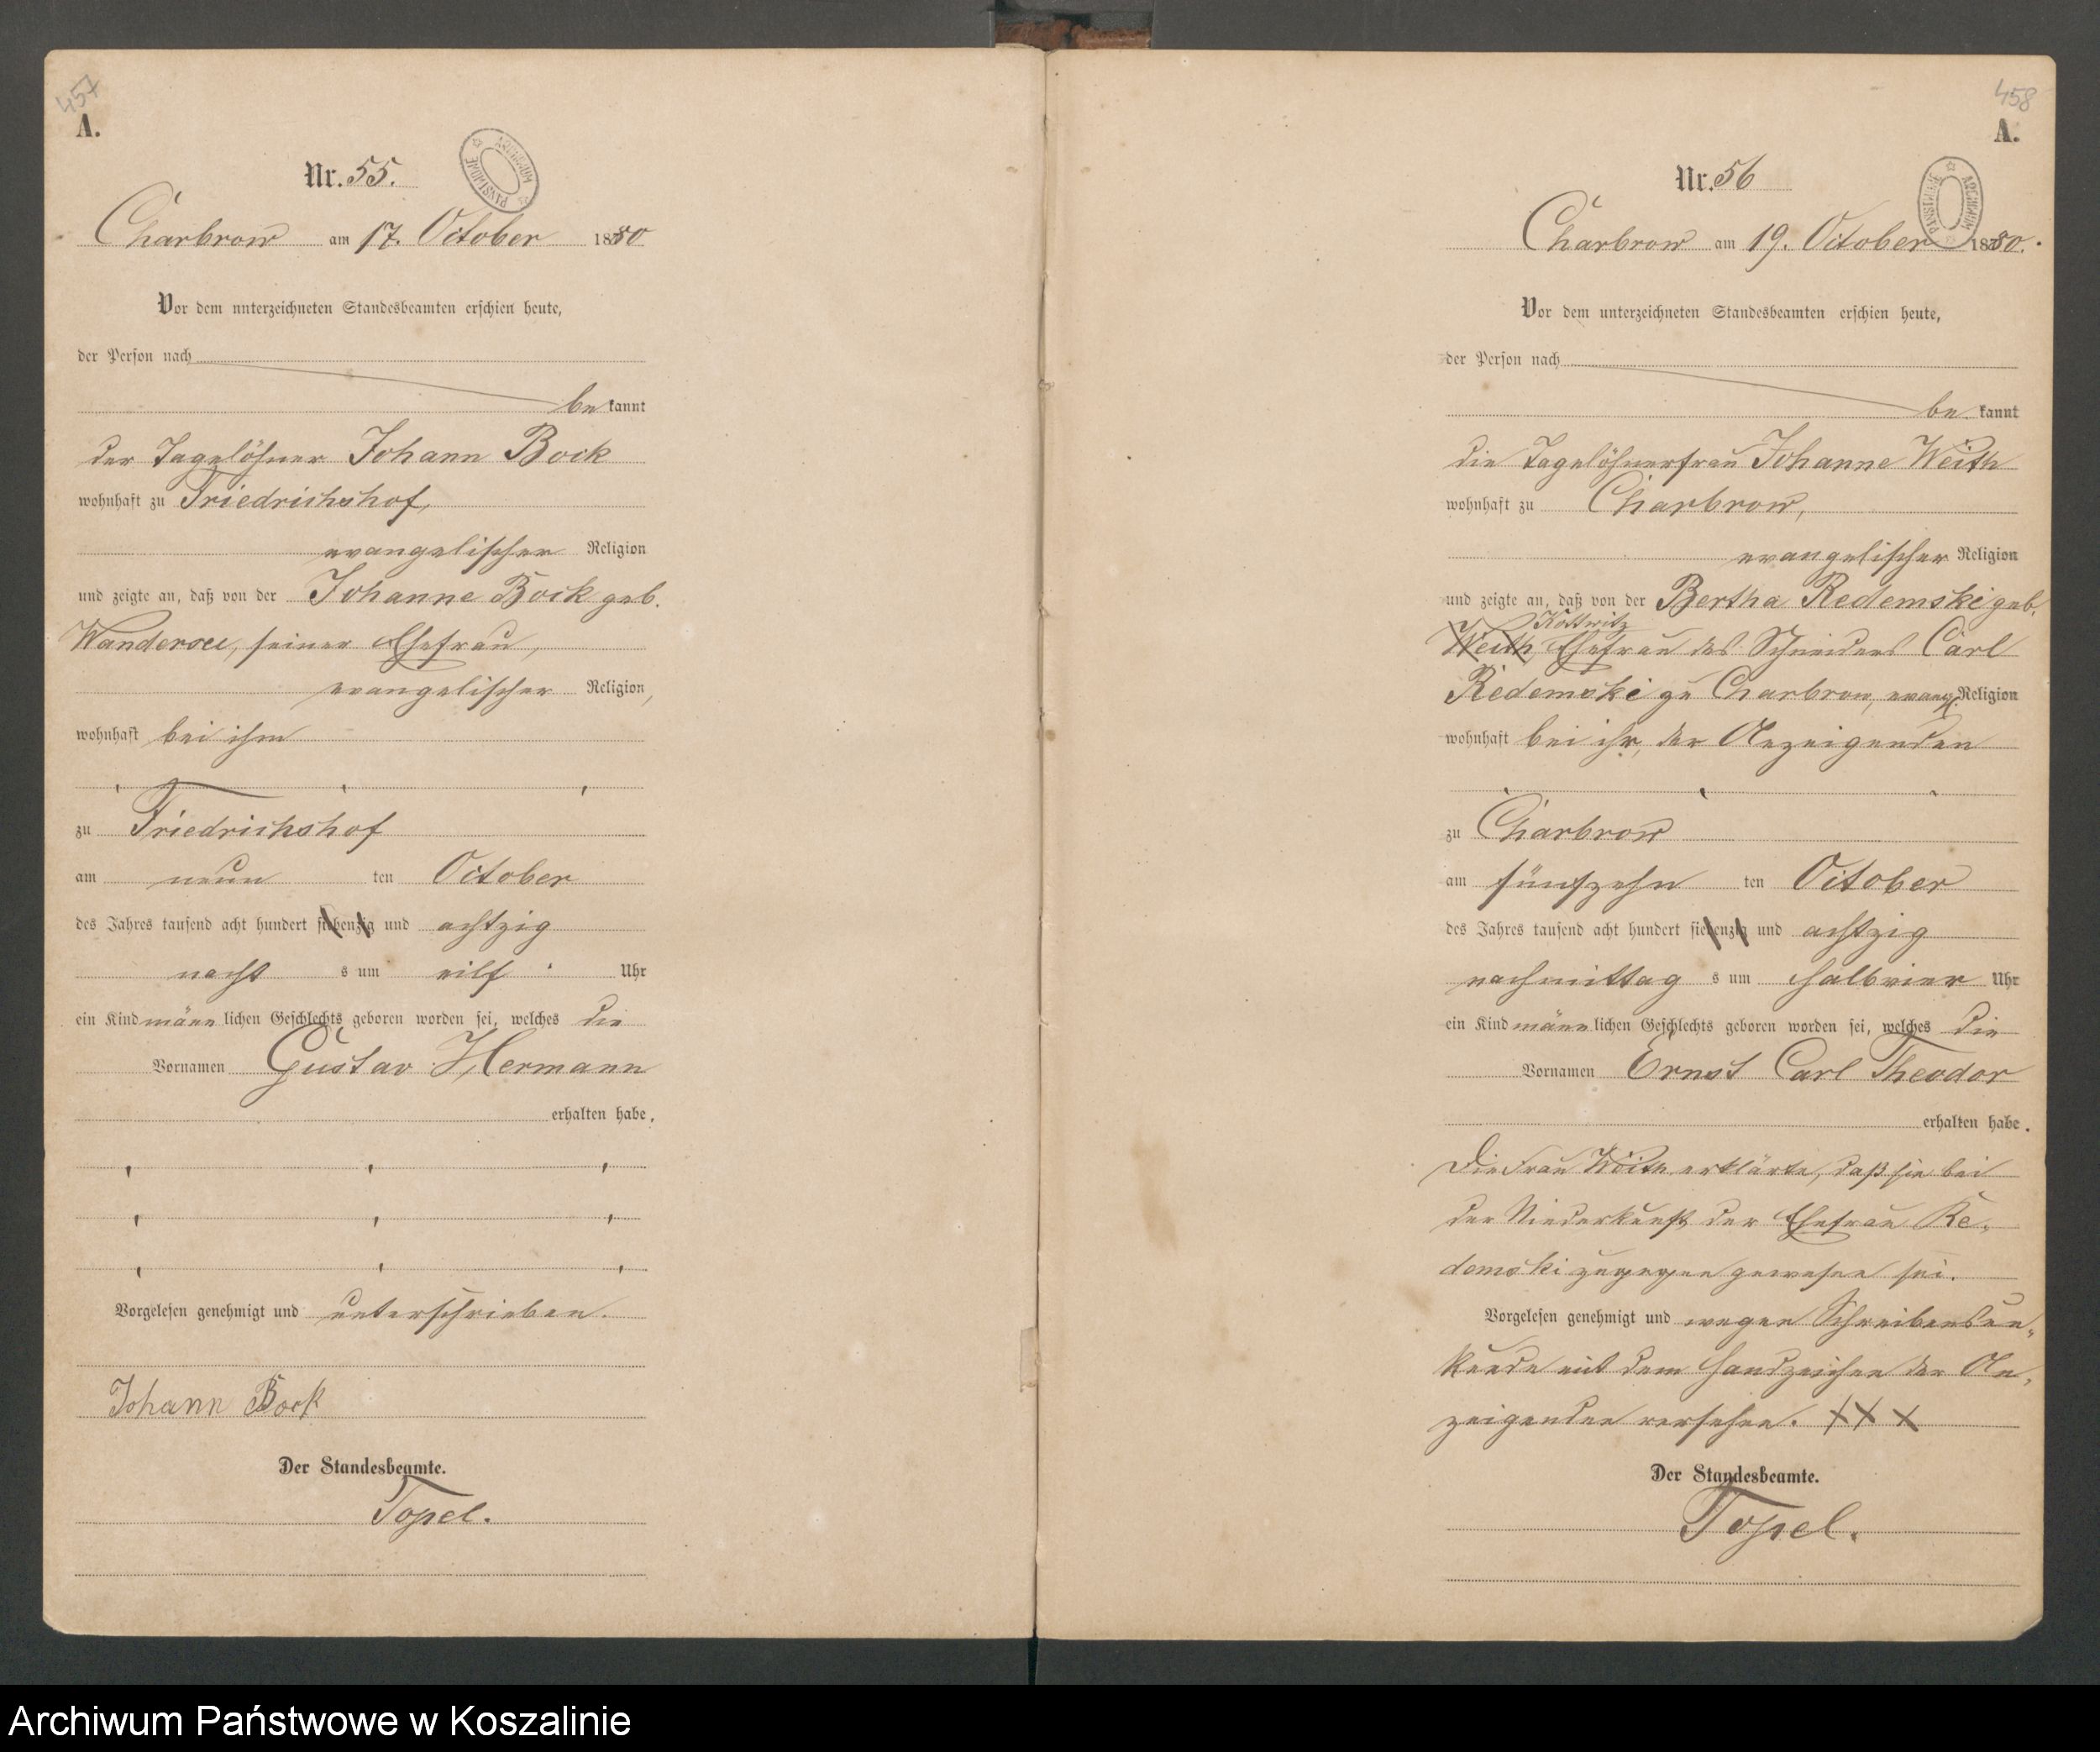 457
A.
Nr. 55.
ARCHIWUM PAŃSTWOWE
Charbrow am 17. October 1880
Vor dem unterzeichneten Standesbeamten erschien heute,
der Person nach
be kannt
der Tagelöhner Johann Bock
wohnhaft zu Friedrichshof,
evangelischer Religion
und zeigte an, daß von der Johanne Bock geb.
Wandersee, seiner Ehefrau,
evangelischer Religion,
wohnhaft bei ihm
zu Friedrichshof
am neun ten October
des Jahres tausend acht hundert siebenzig und achtzig
nacht s um eilf Uhr
ein Kind männ lichen Geschlechts geboren worden sei, welches die
Vornamen Gustav Hermann
erhalten habe.
Vorgelesen genehmigt und unterschrieben.
Johann Bock
Der Standesbeamte.
Topel.
458
A.
Nr. 56
ARCHIWUM PAŃSTWOWE
Charbrow am 19. October 1880.
Vor dem unterzeichneten Standesbeamten erschien heute,
der Person nach
be kannt
die Tagelöhnerfrau Johanne Weith
wohnhaft zu Charbrow,
evangelischer Religion
und zeigte an, daß von der Bertha Redemski geb.
Kottwitz
Weith, Ehefrau des Schneiders Carl
Redemski zu Charbrow, evang. Religion
wohnhaft bei ihr, der Anzeigenden
zu Charbrow
am fünfzehn ten October
des Jahres tausend acht hundert siebenzig und achtzig
nachmittag s um halbvier Uhr
ein Kind männ lichen Geschlechts geboren worden sei, welches die
Vornamen Ernst Carl Theodor
erhalten habe.
Die Frau Weith erklärte, daß sie bei
der Niederkunft der Ehefrau Re-
demski zugegen gewesen sei.
Vorgelesen genehmigt und wegen Schreibensun-
kunde mit dem Handzeichen der An-
zeigenden versehen. XXX
Der Standesbeamte.
Topel.
Archiwum Państwowe w Koszalinie